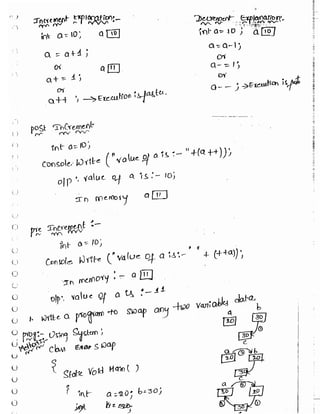 Increment Explanation:-
int a=10; a 10
a = a+1;
or a 11
a+ = 1;
or
a++ ; → Execution is faster.
Decrement Explanation.
int a=10; a 10
a=a-1;
or
a-=1;
or
a-- ; → Execution is
post Increment
int a=10;
Console.Write ("value of a is :- "+(a++));
o/p : value of a is :- 10;
In memory a 11
pre Increment :-
int a=10;
Console.Write ("value of a is:- " + (++a));
In memory :- a 11
o/p : value of a is :- 11
1. Write a program to swap any two variables data.
prog:- Using System;
Class Swap
{
Static Void Main( )
{ int a=20; b=30;
a b
20 30
c
a b
c
a b
c